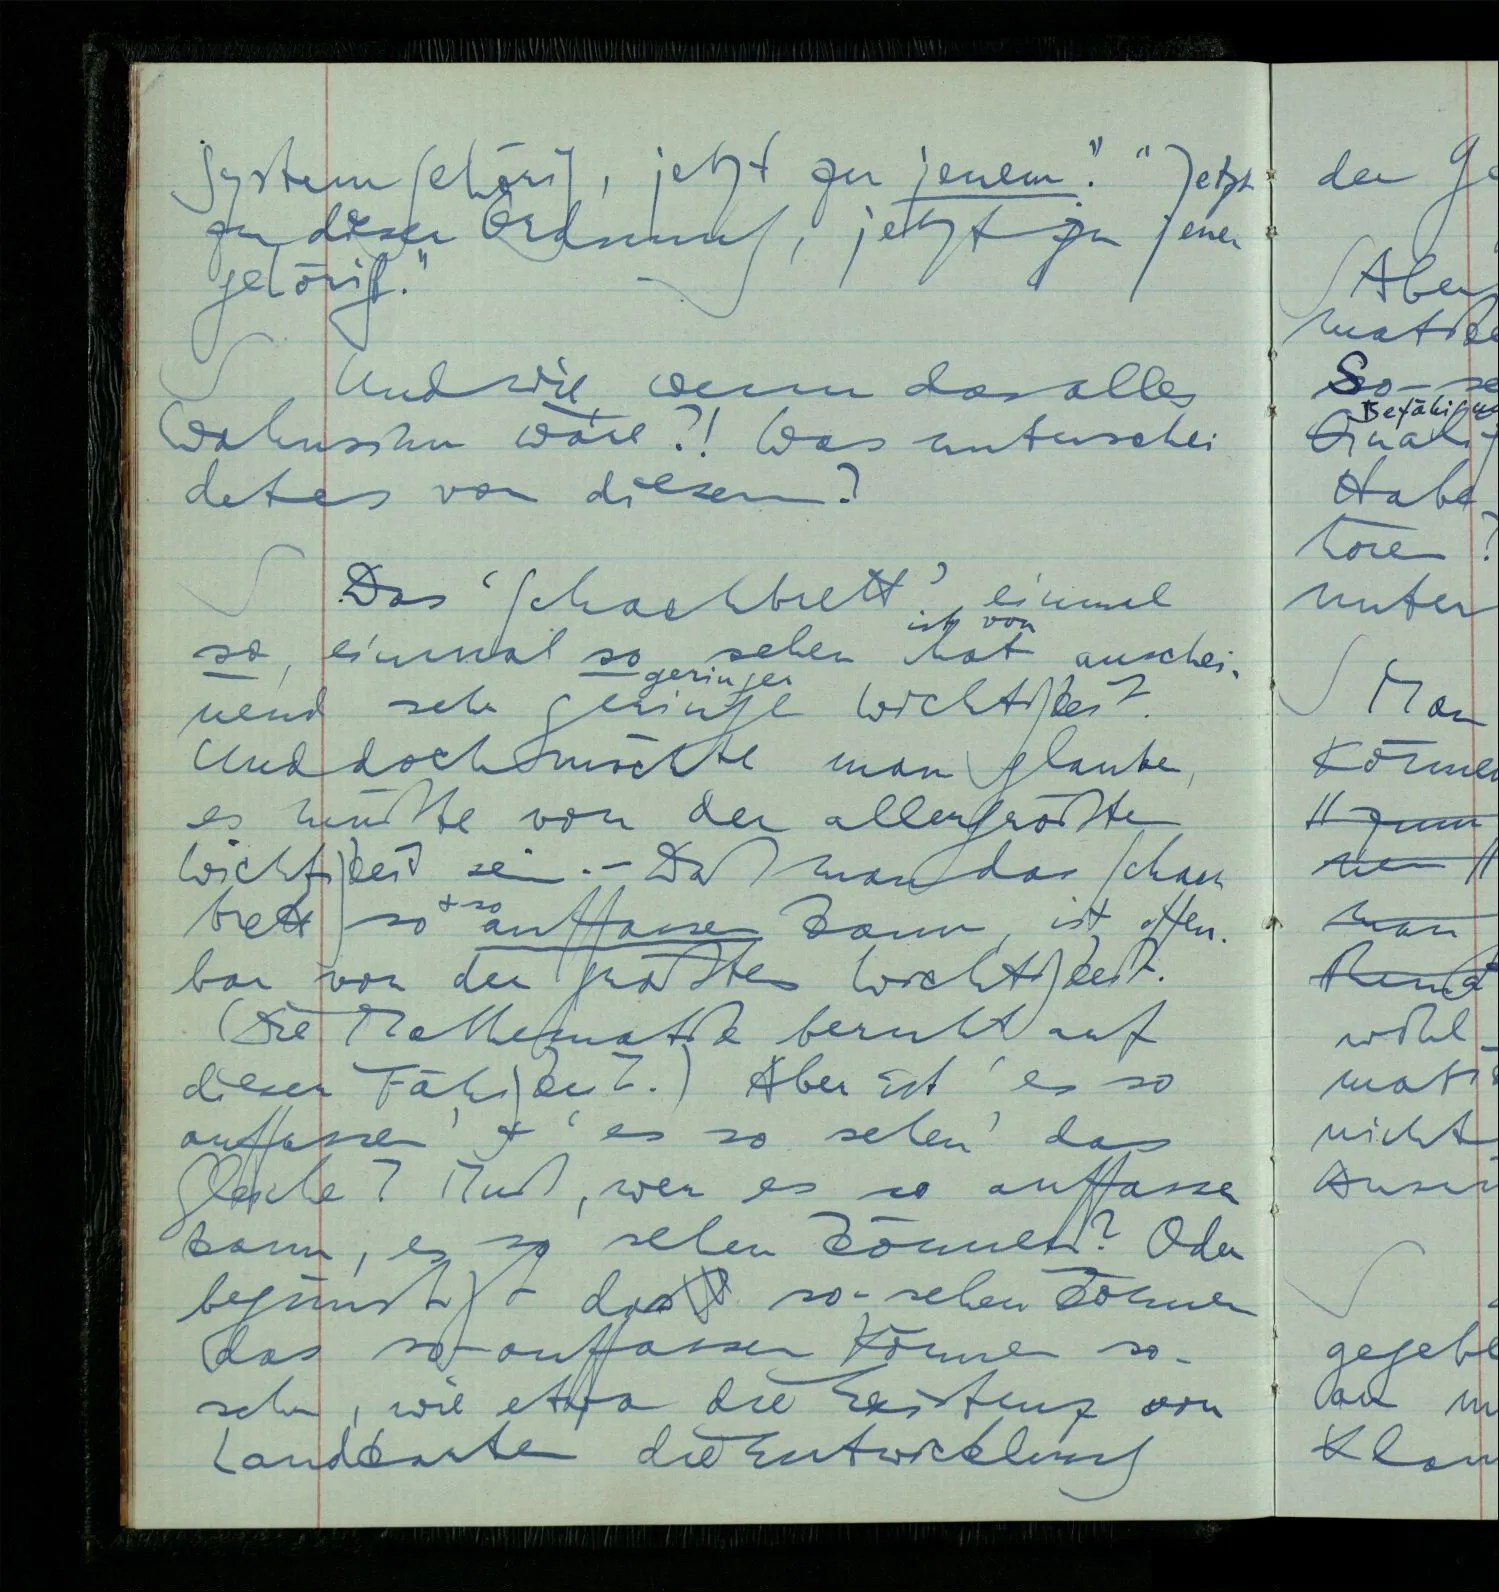 System gehörig, jetzt zu jenem." "Jetzt
zu dieser Ordnung, jetzt zu jener
gehörig."
Und wie, wenn das alles
Wahnsinn wäre?! Was unterschei
det es von diesem?
Das 'Schachbrett' einmal
so, einmal so sehen hat anschei-
ist von
nend sehr geringe Wichtigkeit.
geringer
Und doch möchte man glauben,
es müßte von der allergrößten
Wichtigkeit sein. – Daß man das Schach
brett so + so auffassen kann, ist offen-
bar von der größten Wichtigkeit.
(Die Mathematik beruht auf
dieser Fähigkeit.) Aber ist 'es so
auffassen' + 'es so sehen' das
Gleiche? Muß, wer es so auffassen
kann, es so sehen können? Oder
begünstigt das so-sehen können
das so-auffassen können so-
sehr, wie etwa die Existenz von
Landkarten die Entwicklung
der
Aber
So-
Befähigu
Habe
hören?
unter
Man
Können
man
wohl
nicht
gegebe
an